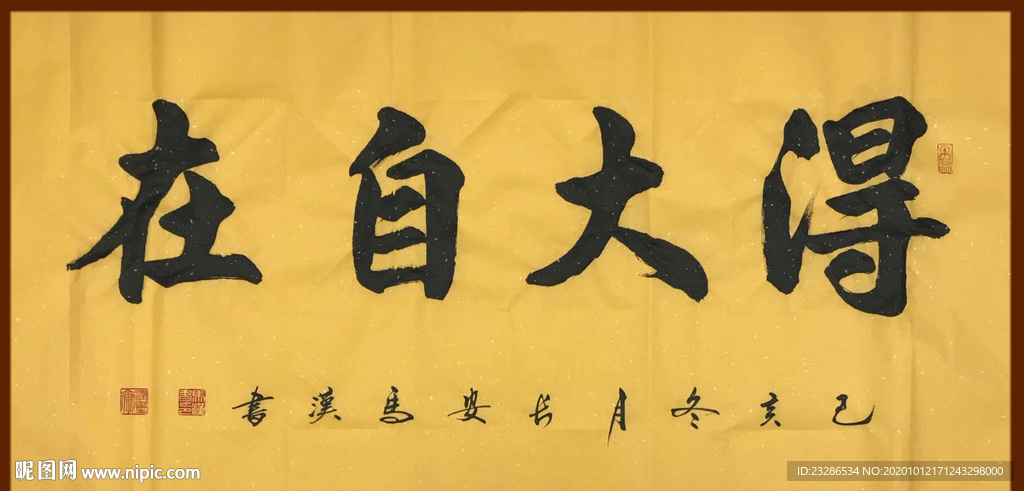 得大自在
己亥冬月长安马汉书
昵图网 www.nipic.com
ID:23286534 NO:20201012171243298000